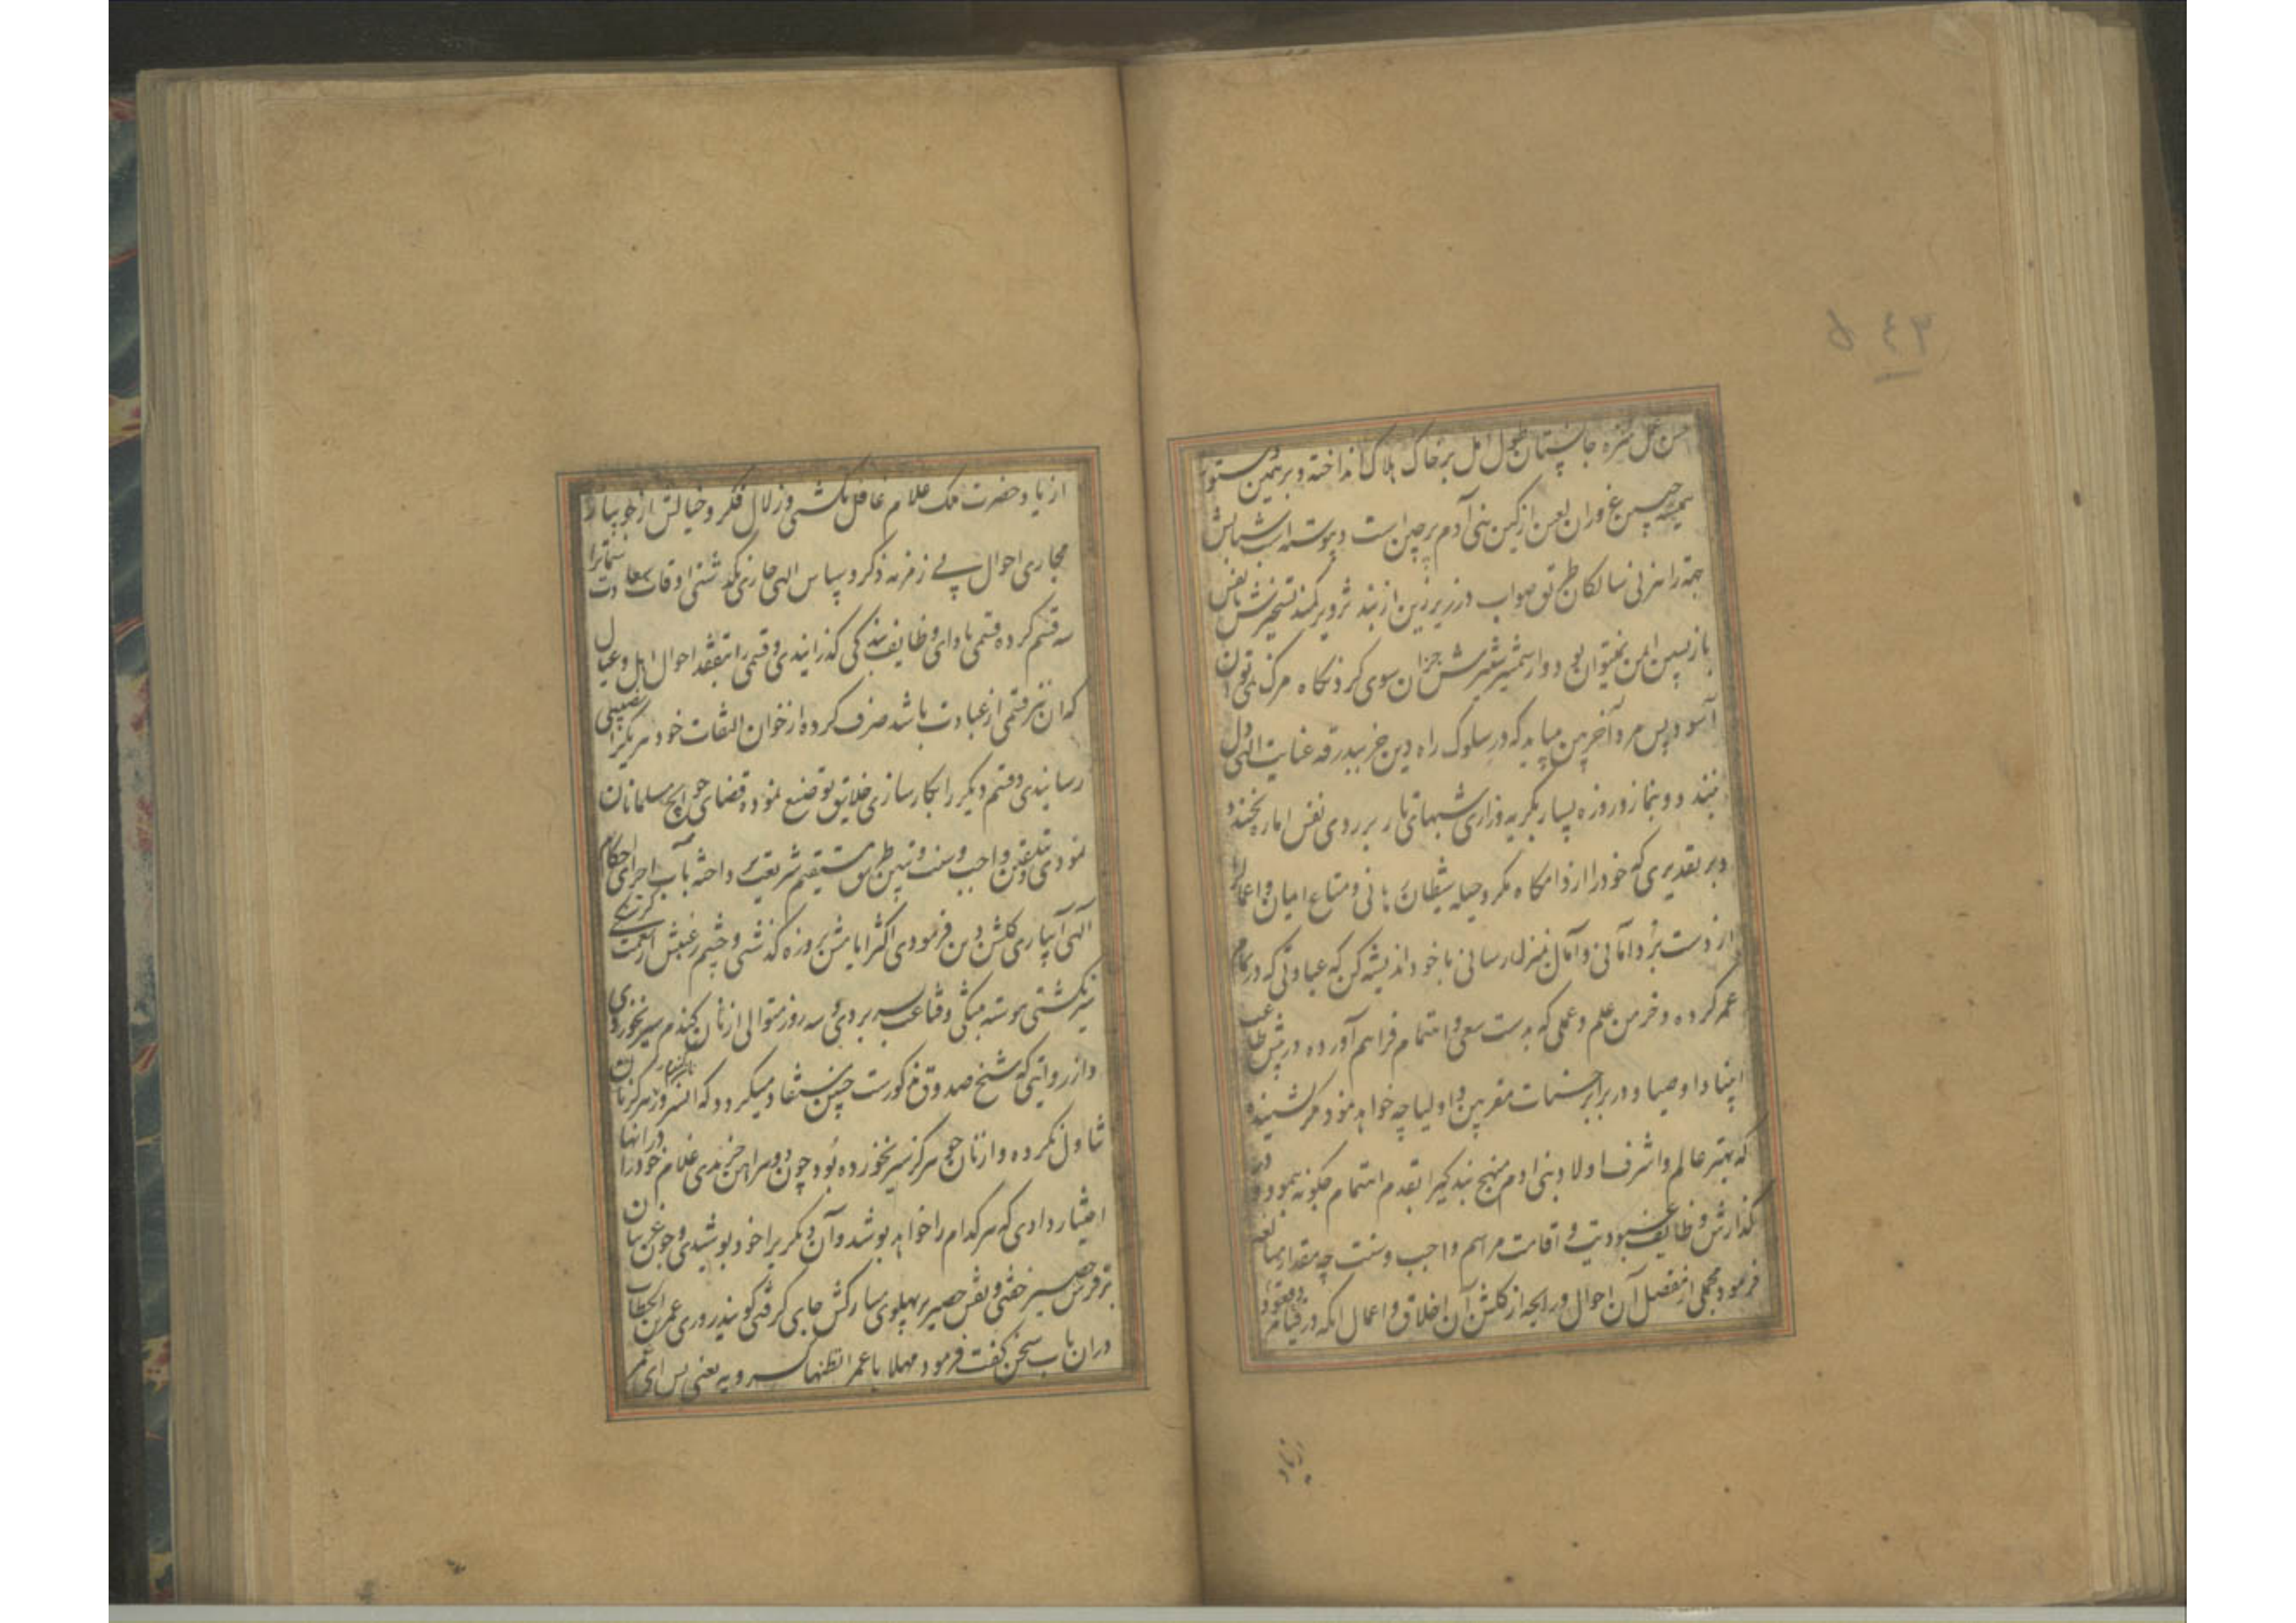 جانستان طول امل بر خاک هلاک انداخته و برهمین دستور
همیشه چین غ وران لعین از کین بنی آدم بر چین است و پیوسته اسب شتابش
جهة راهزنی سالکان طریق صواب در زیر زین از بند تزویر کمند تسخیرش نفس
بازپسین ایمن نمیتوان بود و از شمشیر شرش جز ان سوی کر ونکاه مرک نمی توان
آسود پس مرد آخر بین میباید که در سلوک راه دین جز ببدرقه عنایت الهی دل
نبندد و بنماز و روزه بسیار بکریه وزاری شبهای تار بر روی نفس اماره نخندد
و بر تقدیری که خود را از دامکاه مکر و حیله شیطان رهانی و متاع ایمان و اعمال را
از دست برد امانی و آمال بمنزل رسانی با خود اندیشه کن که عبادتی که در تمام
عمر کرده و خرمن علم و عملی که بدست سعی و اهتمام فراهم آورده در پیش طاعت
انبیا و اوصیا و در برابر حسنات مقربین و اولیا چه خواهد نمود مکر نشنیده
که بهتر عالم و اشرف اولاد بنی ادم منهج بندکی را بقدم اهتمام چکونه پیمود و در
کذارش وظایف عبودیت و اقامت مراسم واجب و سنت چه مقدار مبالغه
فرمود مجملی از مفصل آن احوال و رایحه از کلشن آن اخلاق و اعمال انکه در قیام و قعود
از یاد حضرت ملک علام غافل نکشتی و زلال فکر و خیالش از جویبار
مجاری احوال بی زمزمه ذکر و سپاس الهی جاری نکذشتی اوقات سعادت سمات را
سه قسم کرده قسمی باداء وظایف بندکی کذرانیدی و قسمی را بتفقد احوال اهل و عیال
که ان نیز قسمی از عبادت باشد صرف کرده از خوان التفات خود هر یک را نصیبی
رسانیدی و قسم دیکر را بکارسازی خلایق توضیع نموده قضای حوایج مسلمانان
نمودی و بتلقین واجب و سنت و تبیین طریق مستقیم شریعت پرداخته بآب اجرای احکام
آلهی آبیاری کلشن دین فرمودی اکثر ایامش بروزه کذشتی و چشم رغبتش از نعمت کرسنکی
سیر نکشتی پیوسته بتنکی و قناعت بسر بردی و سه روز متوالی از نان کندم سیر نخوردی
و از روایتی که شیخ صدوق مذکورست چنین مستفاد میکردد که انسرور هرکز نان کندم
تناول نکرده و از نان جو هرکز سیر نخورده بود و چون دو پیراهن خریدی غلام خود را در انها
اختیار دادی که هر کدام را خواهد بپوشد و آن دیکر را خود پوشیدی و چون غریبان
بر فرش حصیر خفتی و نقش حصیر بر پهلوی مبارکش جای کرفتی کویند روزی عمر بن الخطاب
دران باب سخن کفت فرمود مهلا یا عمر اتظنها کسرویه یعنی بس ای عمر